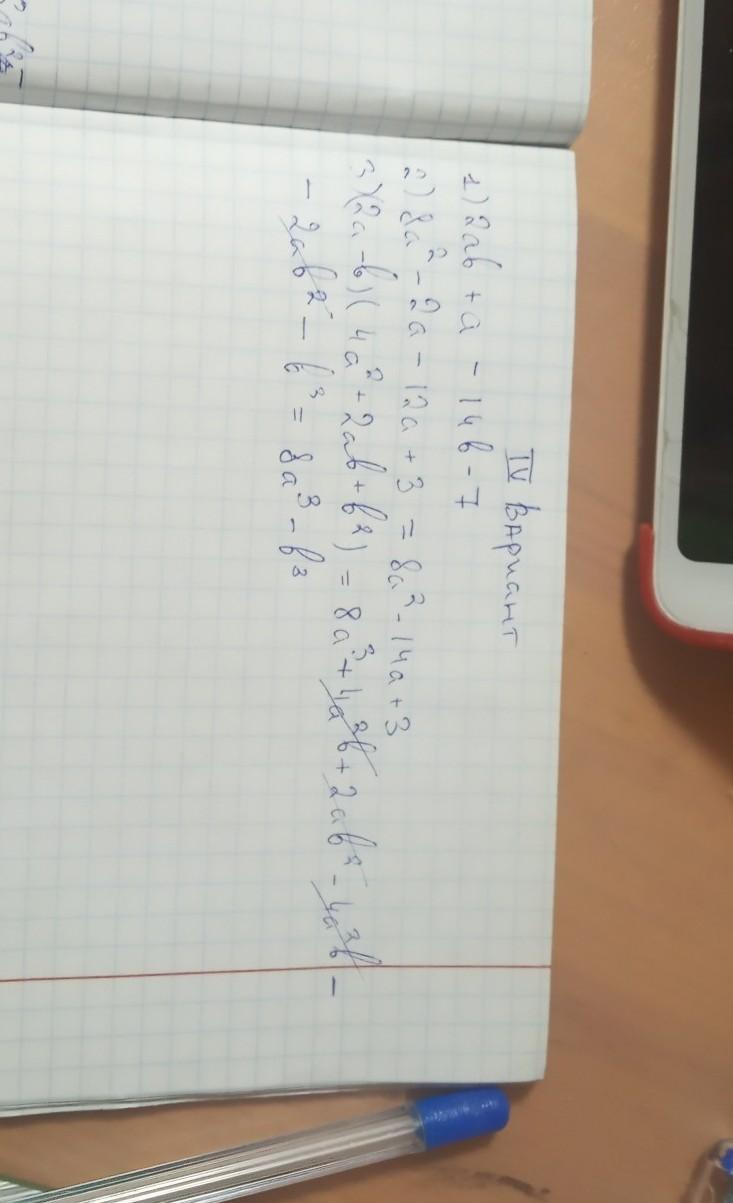 IV Вариант
1) 2ab + a - 14b - 7
2) 8a² - 2a - 12a + 3 = 8a² - 14a + 3
3) (2a - b)(4a² + 2ab + b²) = 8a³ + 4a²b + 2ab² - 4a²b -
- 2ab² - b³ = 8a³ - b³